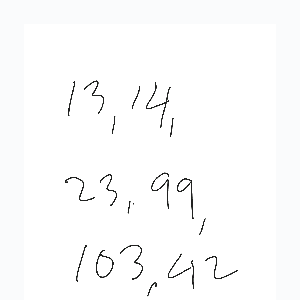 13, 14,
23, 99,
103, 42